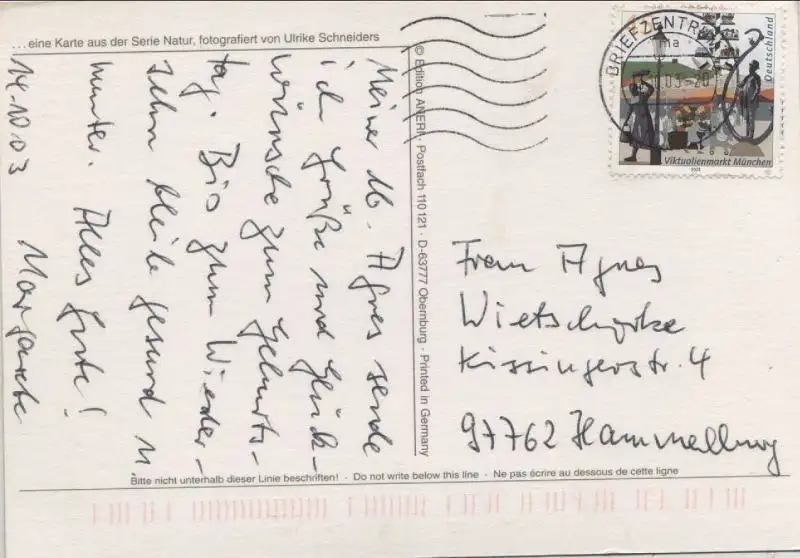 ...eine Karte aus der Serie Natur, fotografiert von Ulrike Schneiders
Meiner lb. Agnes sende
ich Grüße und Glück-
wünsche zum Geburts-
tag. Bis zum Wieder-
sehn bleibe gesund u.
munter. Alles Gute!
14.10.03 Margarete
© Edition ANERI · Postfach 110 121 · D-63777 Obernburg · Printed in Germany
BRIEFZENTR
ma
.03-20
Deutschland
Viktualienmarkt München
2003
Frau Agnes
Kissingerstr. 4
97762 Hammelburg
Bitte nicht unterhalb dieser Linie beschriften! · Do not write below this line · Ne pas écrire au dessous de cette ligne